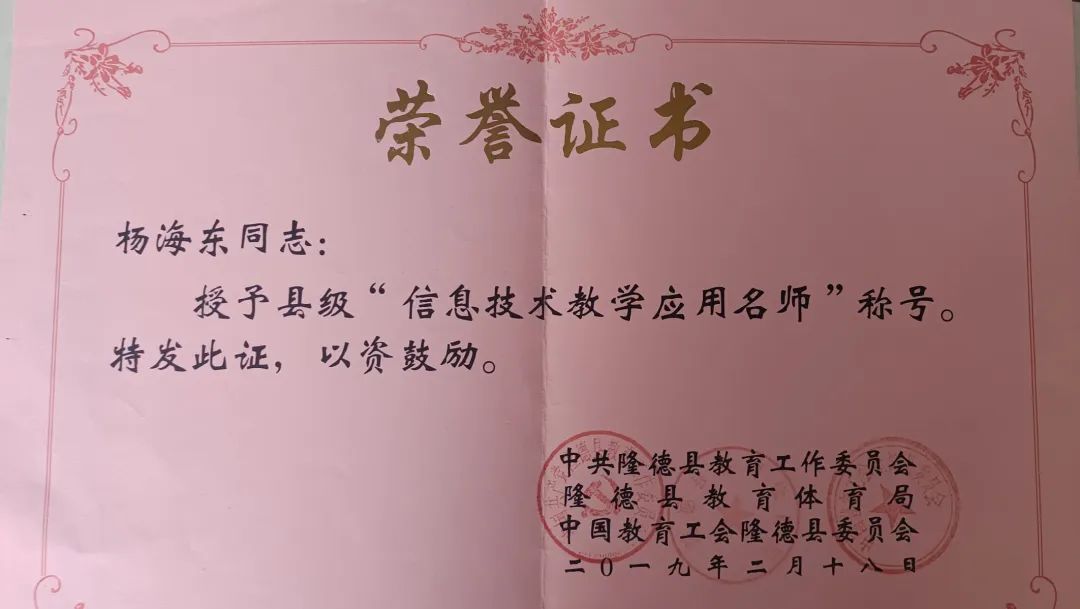 荣誉证书
杨海东同志：
授予县级“信息技术教学应用名师”称号。
特发此证，以资鼓励。
中共隆德县教育工作委员会
隆德县教育体育局
中国教育工会隆德县委员会
二0一九年二月十八日